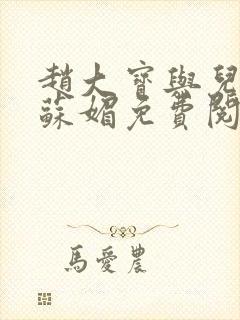 趙大寶與兒
蘇媚免費閱
馬愛農